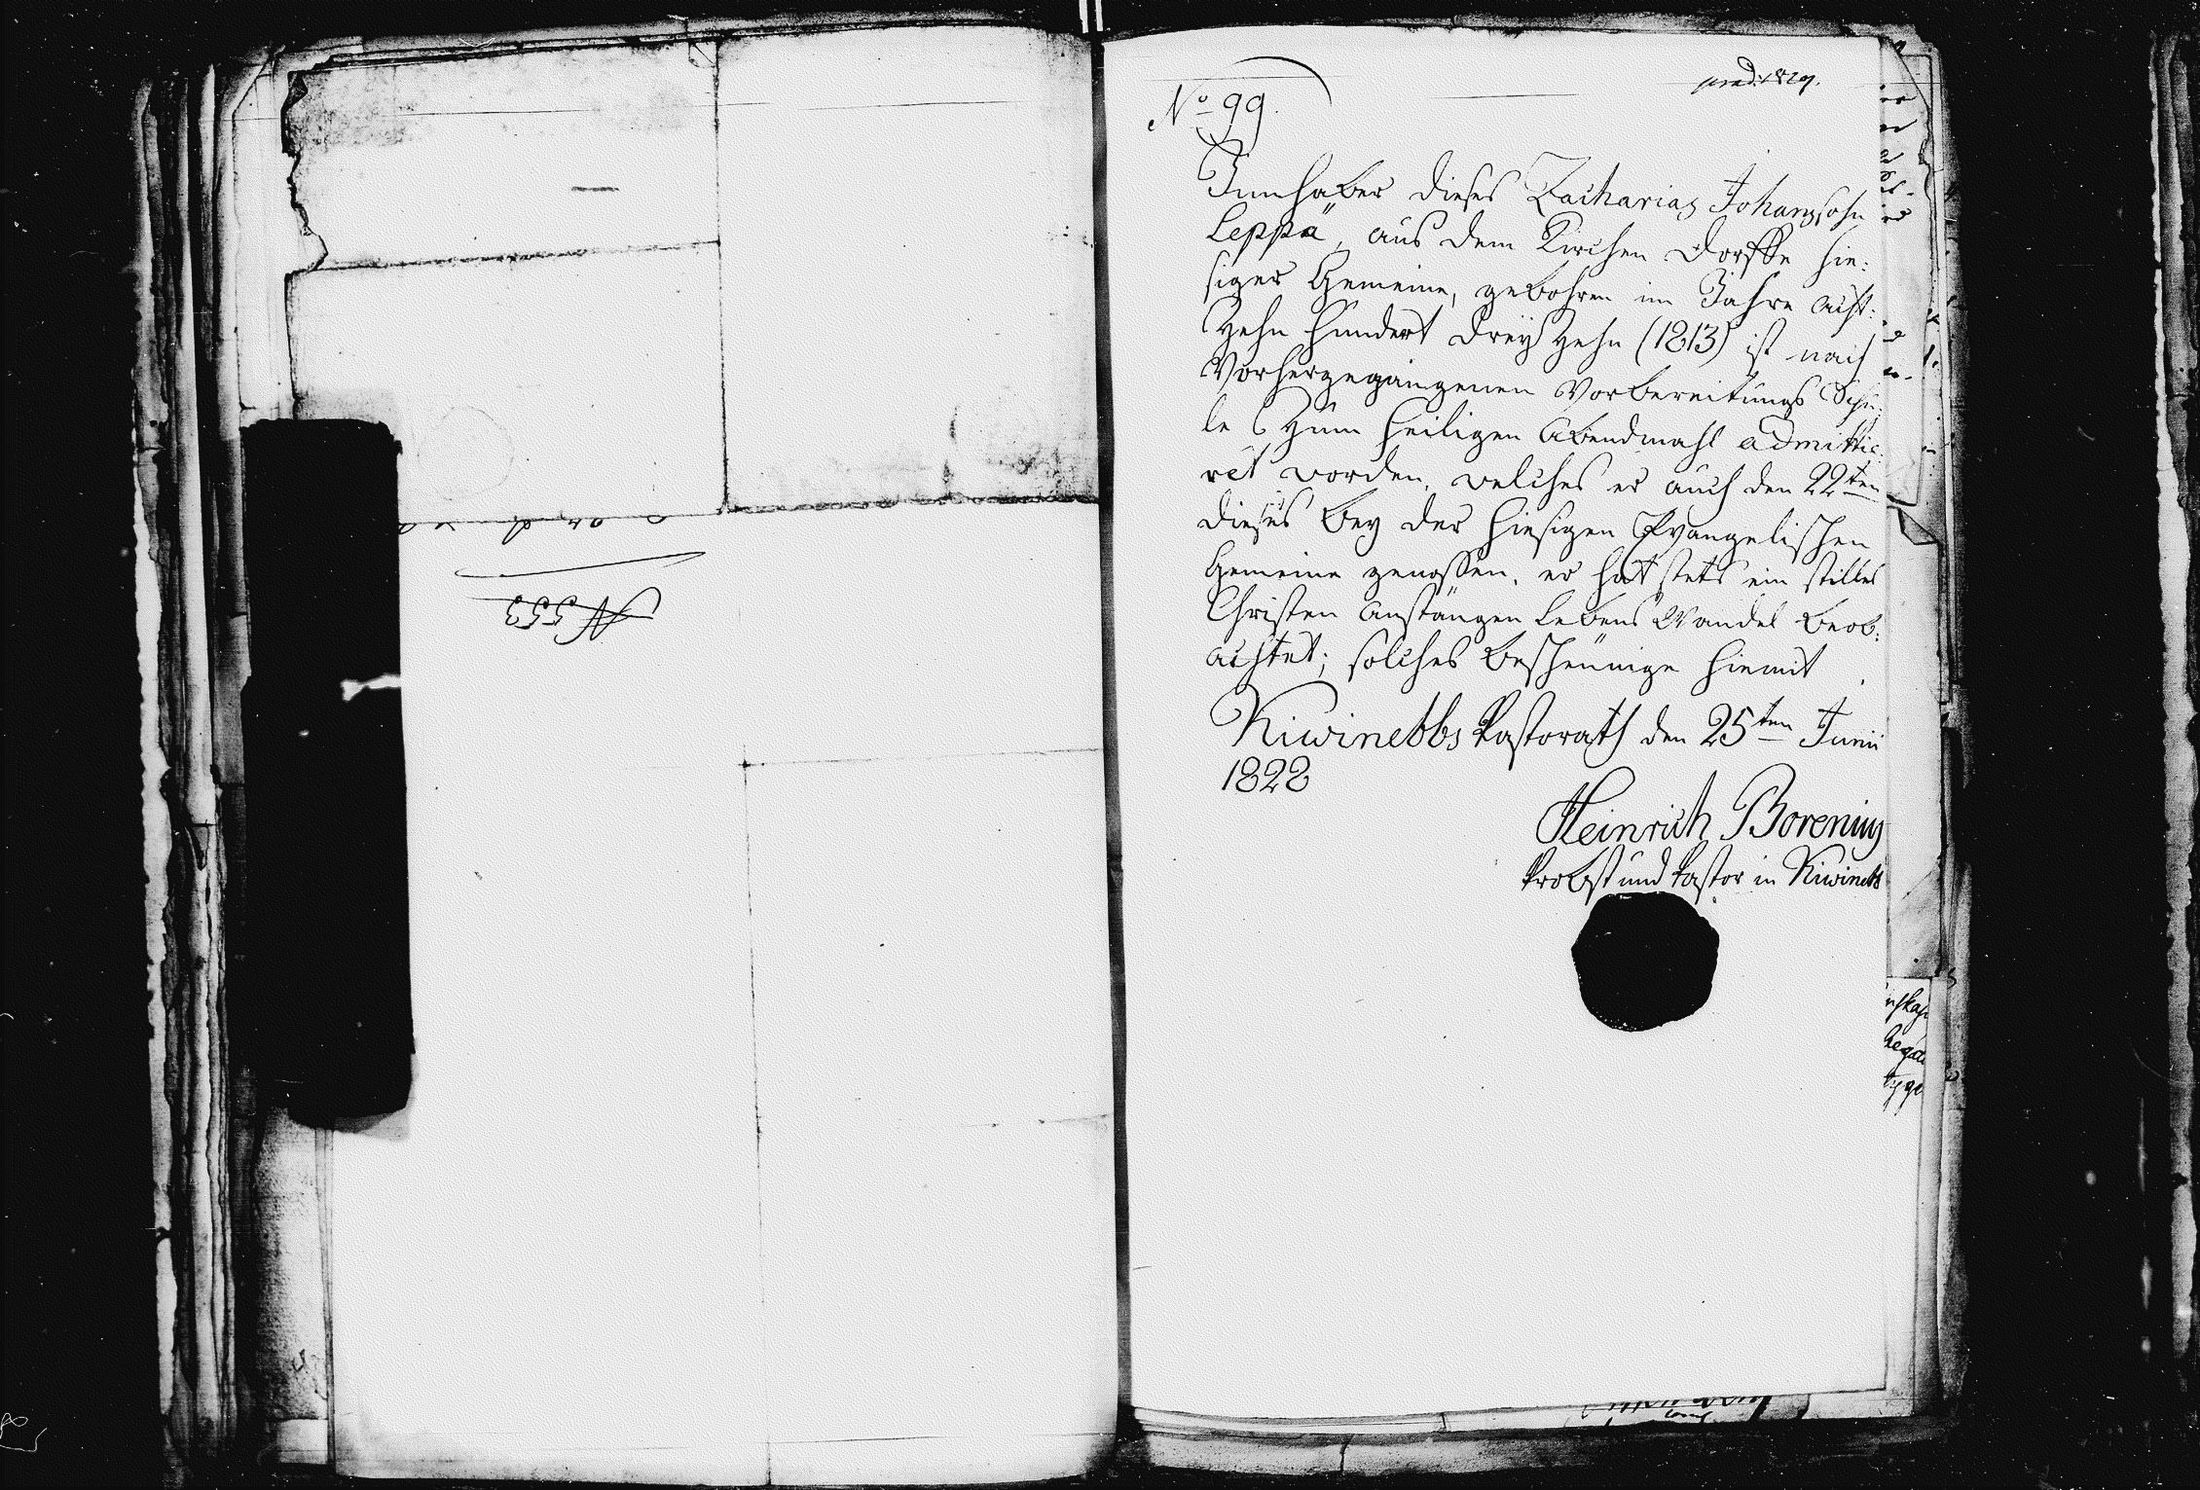 N 553
No 99.
prod. 1829.
Innhaber dieses Zacharias Johanssohn
Leppä, aus dem Kirchen Dorffe hie:
siger Gemeine, gebohren im Jahre acht:
Zehn hundert dreÿ Zehn (1813) ist nach
Vorhergegangenen Vorbereitungs Schu:
le Zum heiligen Abendmahl admittie:
ret worden, welches er auch den 22ten
dieses beÿ der hiesigen Evangelischen
Gemeine genossen, er hat stets ein stilles
Christen anstängen Lebens Wandel beob:
achtet; solches bescheünige hiemit
Kiwinebbs Pastorath den 25ten Junii
1828
Heinrich Borenius
Probst und Pastor in Kiwinebb